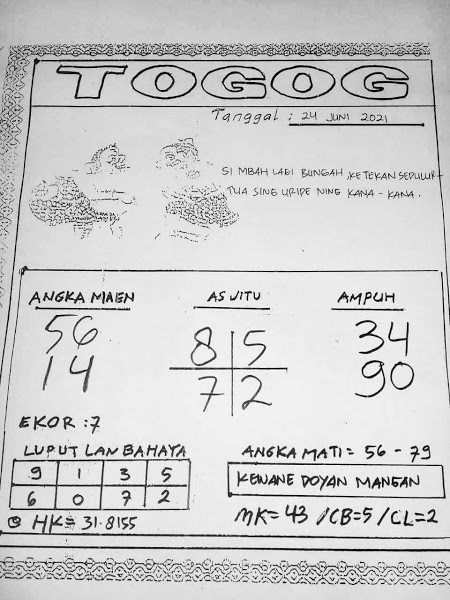 TOGOG
Tanggal : 24 JUNI 2021
SI MBAH LAGI BUNGAH, KETEKAN SEDULUR
TUA SING URIPE NING KANA - KANA.
ANGKA MAEN
56
14
AS JITU
8 5
7 2
AMPUH
34
90
EKOR : 7
LUPUT LAN BAHAYA
9 1 3 5
6 0 7 2
HK = 31.8155
ANGKA MATI = 56 - 79
KEWANE DOYAN MANGAN
MK = 43 / CB = 5 / CL = 2